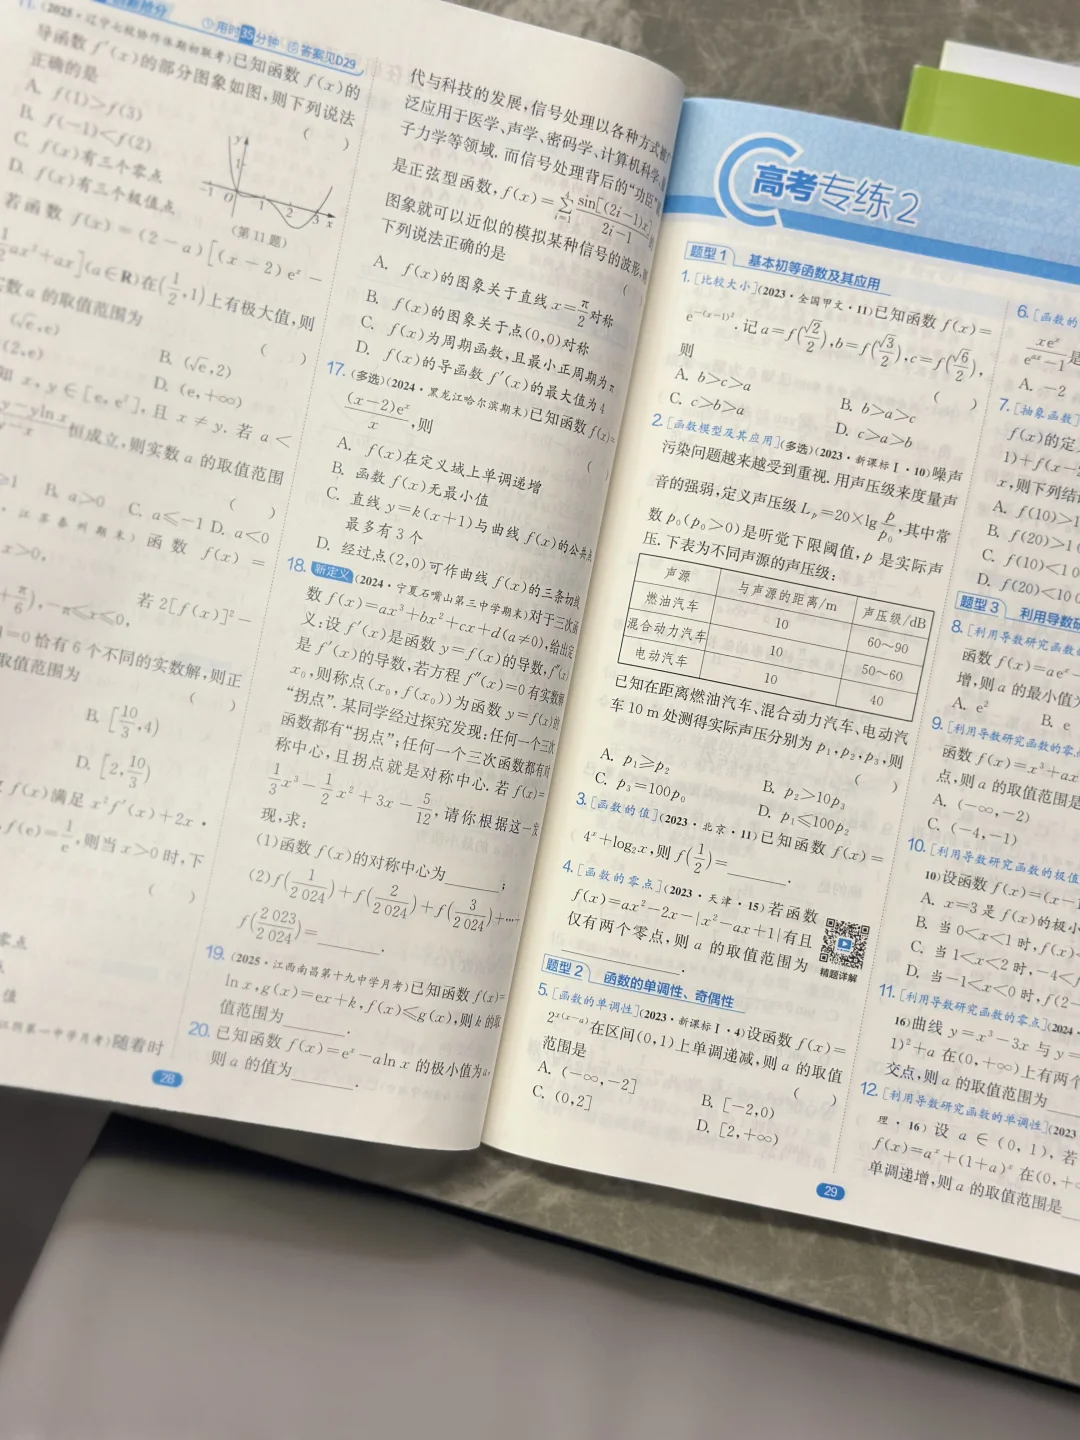 11. (2025·辽宁七校协作体期初联考)已知函数 f(x)的
用时35分钟 答案见D29
导函数 f′(x)的部分图象如图,则下列说法
正确的是 ( )
A. f(1)>f(3)
B. f(−1)<f(2)
C. f(x)有三个零点
D. f(x)有三个极值点
(第11题)
若函数 f(x)=(2−a)[(x−2)eˣ−
ax²+ax](a∈R)在(1/2,1)上有极大值,则
实数a的取值范围为 ( )
(√e,e) B. (√e,2)
(2,e) D. (e,+∞)
知 x,y∈[e,e²],且 x≠y.若 a<
恒成立,则实数 a 的取值范围
( )
B. a>0 C. a⩽−1 D. a<0
·江苏泰州期末)函数 f(x)=
x>0,
−π⩽x⩽0, 若2[f(x)]²−
=0恰有6个不同的实数解,则正
取值范围为 ( )
B. [10/3,4)
D. [2,10/3)
f(x)满足 x²f′(x)+2x·
f(e)=1/e,则当 x>0时,下
( )
零点
值
江阴第一中学月考)随着时
28
代与科技的发展,信号处理以各种方式被广
泛应用于医学、声学、密码学、计算机科学、
子力学等领域.而信号处理背后的“功臣”
是正弦型函数,f(x)=∑ sin[(2i−1)x]/(2i−1)
图象就可以近似的模拟某种信号的波形,
下列说法正确的是 ( )
A. f(x)的图象关于直线 x=π/2 对称
B. f(x)的图象关于点(0,0)对称
C. f(x)为周期函数,且最小正周期为π
D. f(x)的导函数 f′(x)的最大值为4
17. (多选)(2024·黑龙江哈尔滨期末)已知函数 f(x)=
(x−2)eˣ/x,则 ( )
A. f(x)在定义域上单调递增
B. 函数 f(x)无最小值
C. 直线 y=k(x+1)与曲线 f(x)的公共点
最多有3个
D. 经过点(2,0)可作曲线 f(x)的三条切线
18. 新定义 (2024·宁夏石嘴山第三中学期末)对于三次函
数 f(x)=ax³+bx²+cx+d(a≠0),给出定
义:设 f′(x)是函数 y=f(x)的导数,f″(x)
是 f′(x)的导数,若方程 f″(x)=0有实数解
x₀,则称点(x₀,f(x₀))为函数 y=f(x)的
“拐点”.某同学经过探究发现:任何一个三次
函数都有“拐点”;任何一个三次函数都有对
称中心,且拐点就是对称中心.若 f(x)=
1/3x³−1/2x²+3x−5/12,请你根据这一发
现,求:
(1)函数 f(x)的对称中心为______;
(2)f(1/2 024)+f(2/2 024)+f(3/2 024)+…+
f(2 023/2 024)=______.
19. (2025·江西南昌第十九中学月考)已知函数 f(x)=
ln x,g(x)=ex+k,f(x)⩽g(x),则 k 的取
值范围为______.
20. 已知函数 f(x)=eˣ−aln x 的极小值为a,
则 a 的值为______.
高考专练2
题型1 基本初等函数及其应用
1. [比较大小](2023·全国甲文·11)已知函数 f(x)=
e^(−(x−1)²).记 a=f(√2/2),b=f(√3/2),c=f(√6/2),
则 ( )
A. b>c>a B. b>a>c
C. c>b>a D. c>a>b
2. [函数模型及其应用](多选)(2023·新课标Ⅰ·10)噪声
污染问题越来越受到重视.用声压级来度量声
音的强弱,定义声压级 Lₚ=20×lg p/p₀,其中常
数 p₀(p₀>0)是听觉下限阈值,p 是实际声
压.下表为不同声源的声压级:
声源 与声源的距离/m 声压级/dB
燃油汽车 10 60~90
混合动力汽车 10 50~60
电动汽车 10 40
已知在距离燃油汽车、混合动力汽车、电动汽
车10 m处测得实际声压分别为 p₁,p₂,p₃,则
( )
A. p₁⩾p₂ B. p₂>10p₃
C. p₃=100p₀ D. p₁⩽100p₂
3. [函数的值](2023·北京·11)已知函数 f(x)=
4ˣ+log₂x,则 f(1/2)=______.
4. [函数的零点](2023·天津·15)若函数
f(x)=ax²−2x−|x²−ax+1|有且
仅有两个零点,则 a 的取值范围为
______.
精题详解
题型2 函数的单调性、奇偶性
5. [函数的单调性](2023·新课标Ⅰ·4)设函数 f(x)=
2^(x(x−a))在区间(0,1)上单调递减,则 a 的取值
范围是 ( )
A. (−∞,−2] B. [−2,0)
C. (0,2] D. [2,+∞)
29
6. [函数的
xeˣ/(eᵃˣ−1)是
A. −2
7. [抽象函数]
f(x)的定
1)+f(x−
x,则下列结
A. f(10)>1
B. f(20)>1
C. f(10)<1 0
D. f(20)<10 0
题型3 利用导数研
8. [利用导数研究函数的
函数 f(x)=aeˣ−
增,则 a 的最小值为
A. e² B. e
9. [利用导数研究函数的零点
函数 f(x)=x³+ax
点,则 a 的取值范围是
A. (−∞,−2)
C. (−4,−1)
10. [利用导数研究函数的极值
10)设函数 f(x)=(x−1
A. x=3是 f(x)的极小
B. 当0<x<1时,f(x)
C. 当1<x<2时,−4<f
D. 当−1<x<0时,f(2−
11. [利用导数研究函数的零点](2024·
16)曲线 y=x³−3x 与 y=
1)²+a 在(0,+∞)上有两个
交点,则 a 的取值范围为
12. [利用导数研究函数的单调性](2023
理·16)设 a∈(0,1),若
f(x)=aˣ+(1+a)ˣ 在(0,+∞
单调递增,则 a 的取值范围是